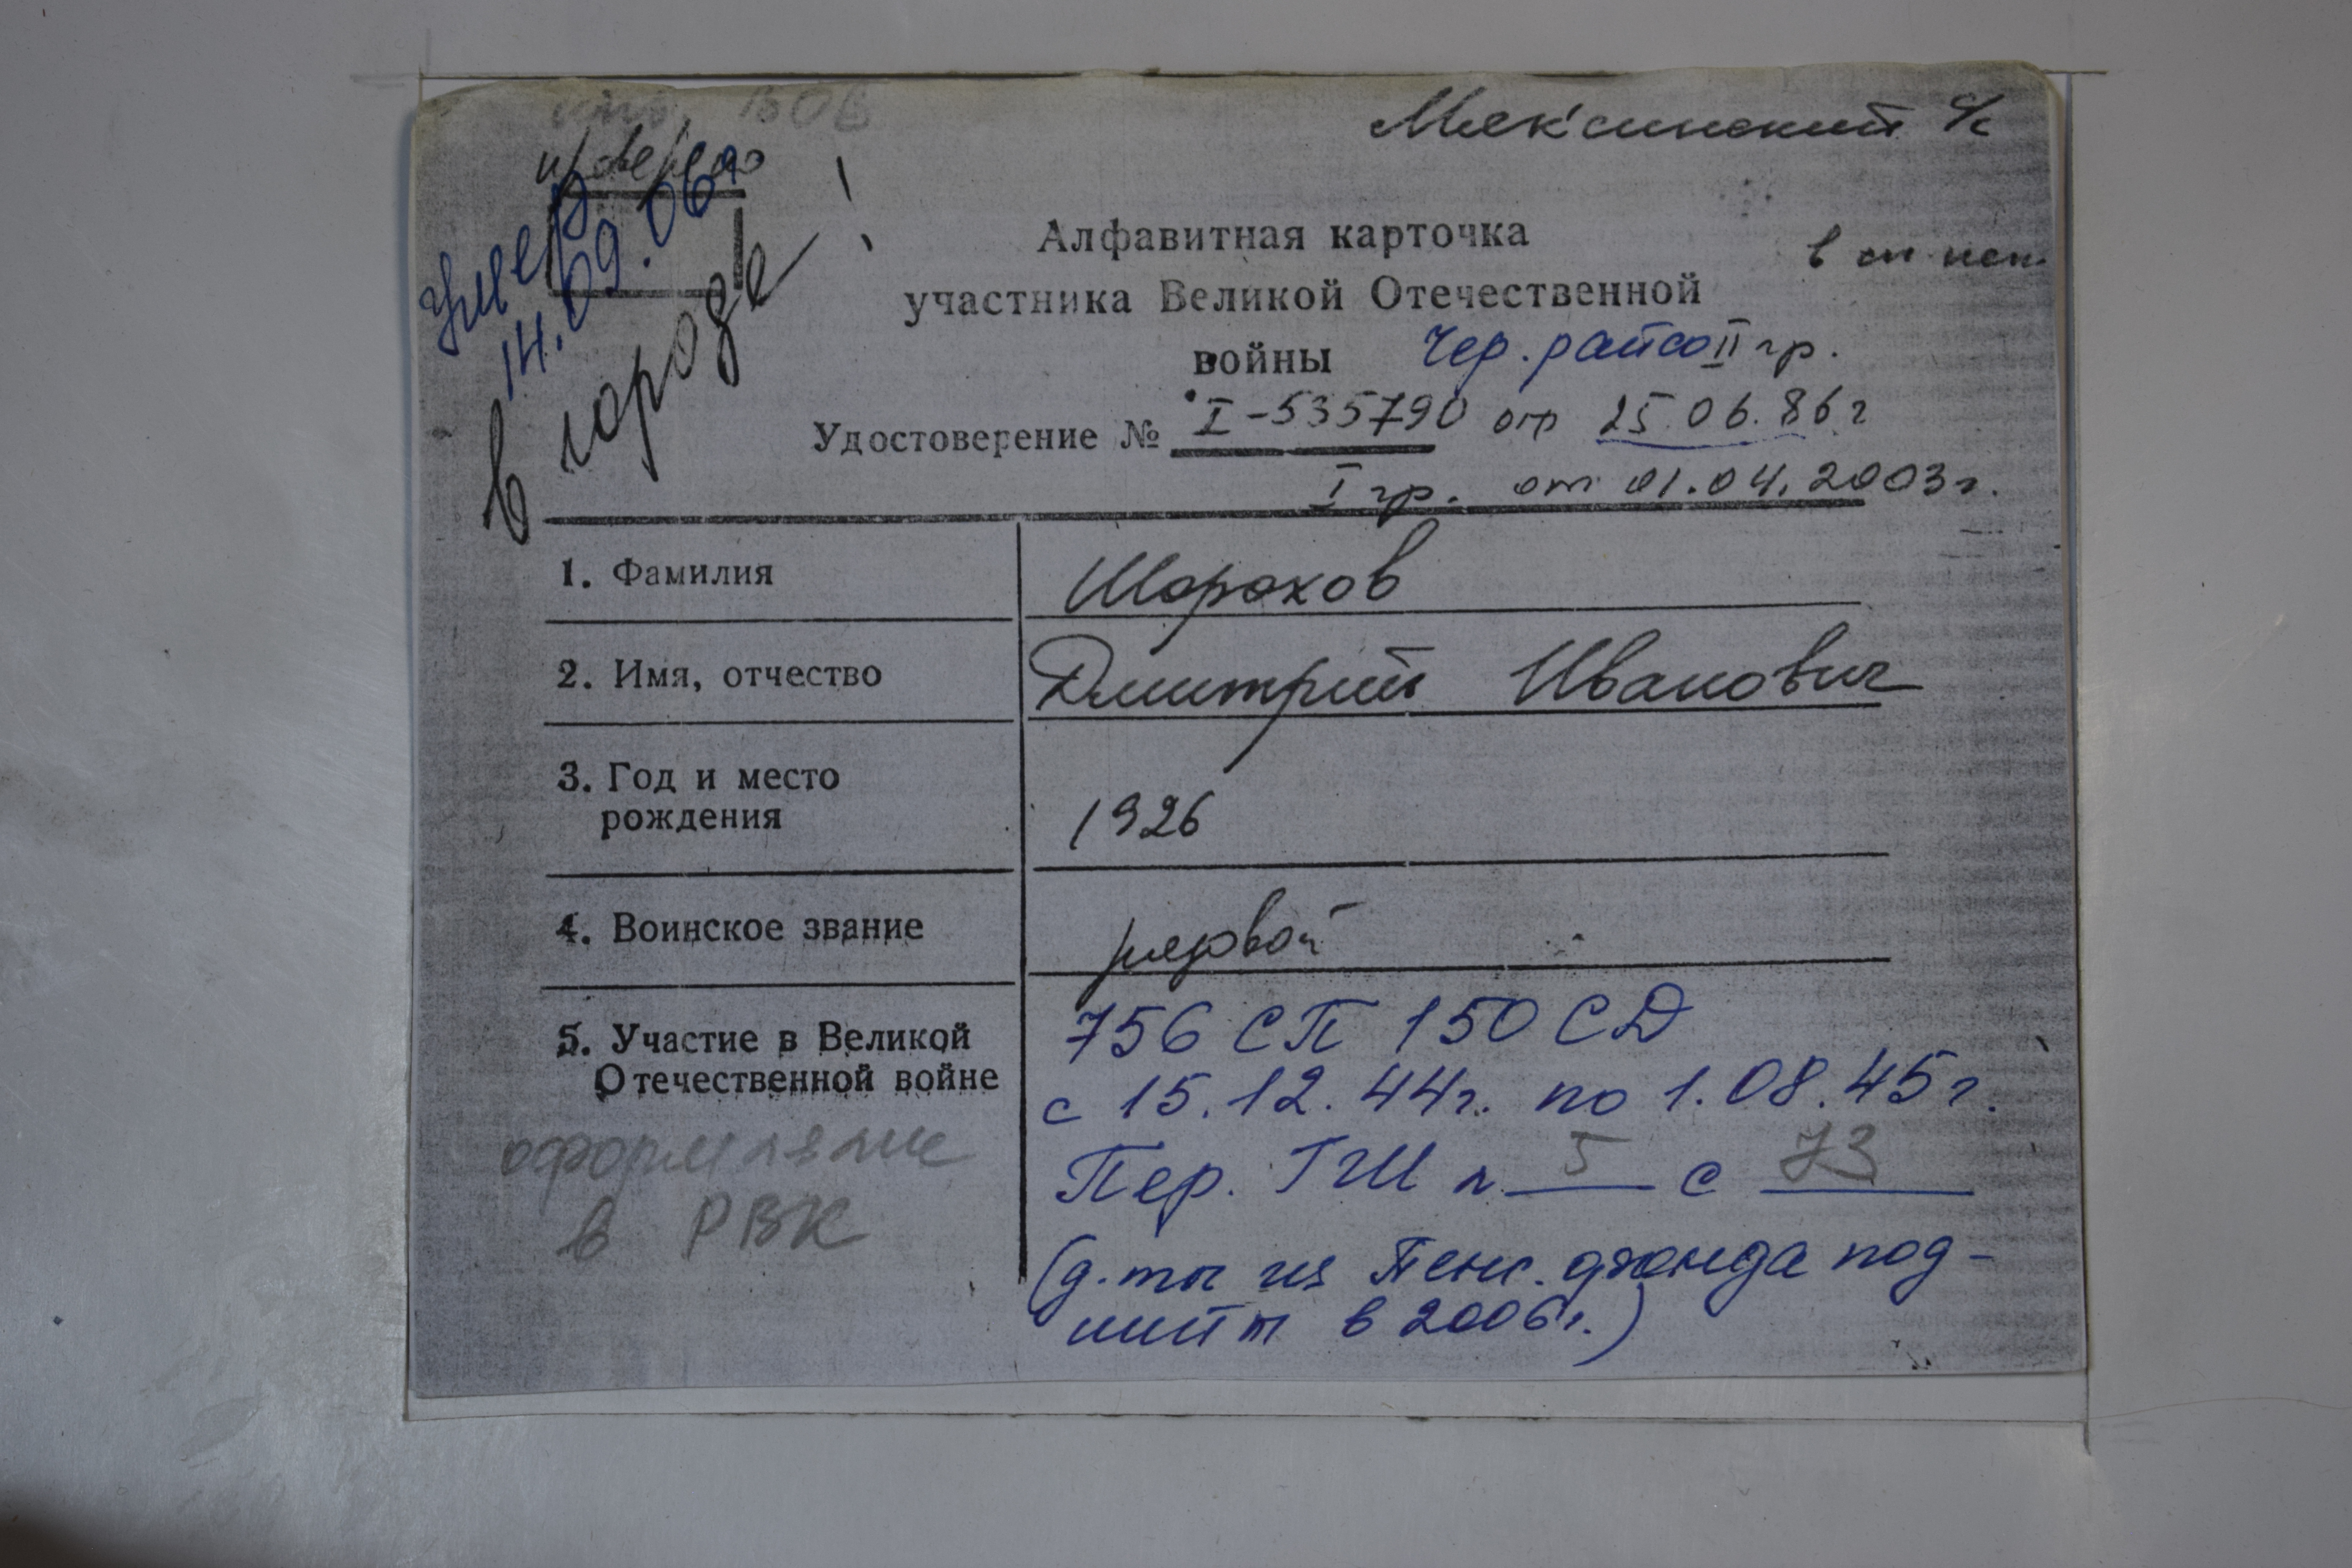 инв. ВОВ
Мяксинский с/с
проверено
умер
14.09.06г
в городе!
Алфавитная карточка
участника Великой Отечественной
войны Чер. райсо II гр.
Удостоверение № I-535790 от 25.06.86г
I гр. от 01.04.2003г.
1. Фамилия Шорохов
2. Имя, отчество Дмитрий Иванович
3. Год и место
рождения 1926
4. Воинское звание рядовой
5. Участие в Великой
Отечественной войне
756 СП 150 СД
с 15.12.44г. по 1.08.45г.
Пер. ГШ п 5 с 73
(д-ты из Пенс. фонда под-
шиты в 2006г.)
оформление
в РВК